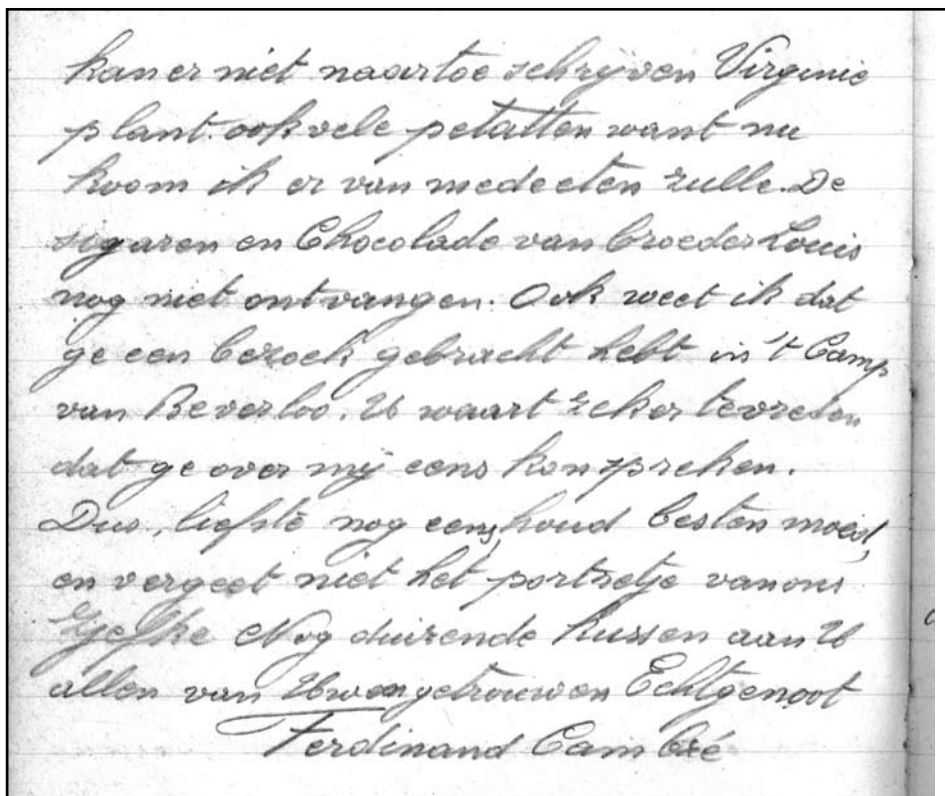 kan er niet naartoe schrijven Virginie
plant ook vele petatten want nu
koom ik er van mede eten zulle. De
sigaren en Chocolade van broeder Louis
nog niet ontvangen. Ook weet ik dat
ge een bezoek gebracht hebt in 't Camp
van Beverloo. U waart zeker tevreden
dat ge over mij eens kon spreken.
Dus, liefste nog eens, houd besten moed,
en vergeet niet het portretje van ons
Nog duizende kussen aan U
allen van Uwen getrouwen Echtgenoot
Ferdinand Cambré